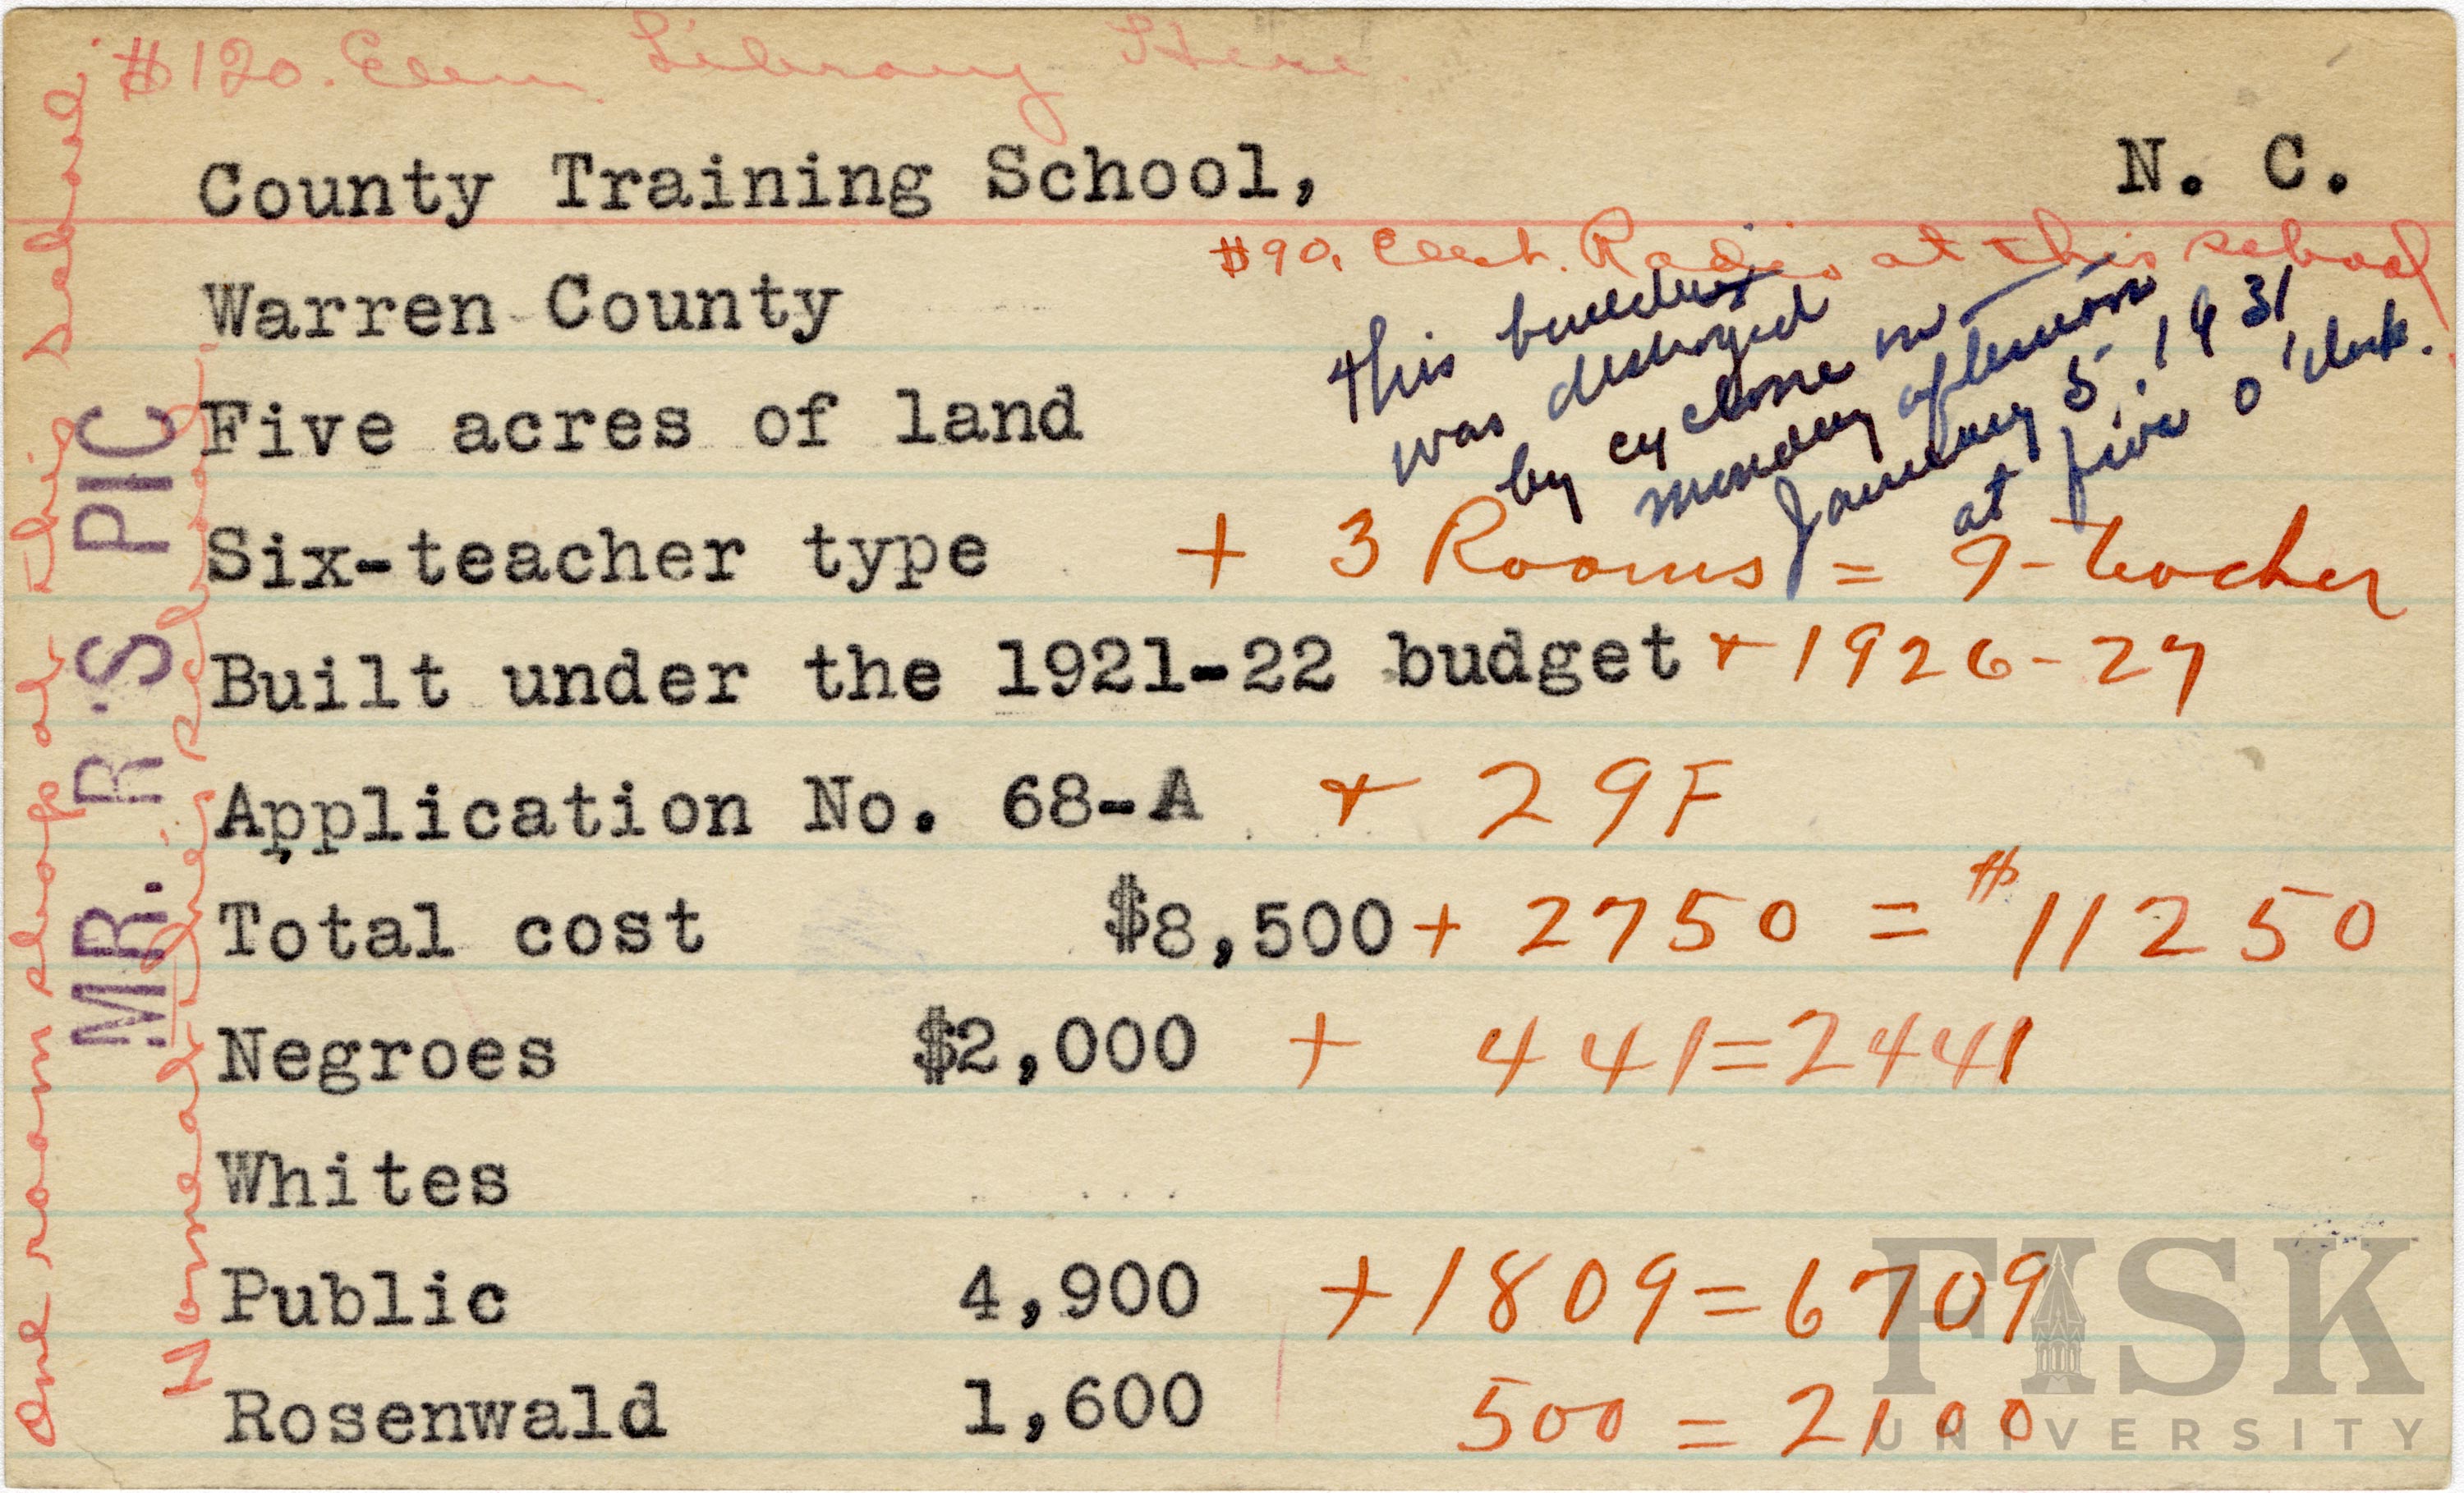 $120. Elem. Library Here.
County Training School, N. C.
$90. Elect. Radio at this school
Warren County
this building
was destroyed
by cyclone on
monday afternoon
January 5, 1931
at five o'clock.
Five acres of land
Six-teacher type + 3 Rooms = 9-teacher
Built under the 1921-22 budget + 1926-27
Application No. 68-A + 29F
Total cost $8,500 + 2750 = $11250
Negroes $2,000 + 441=2441
Whites
Public 4,900 +1809=6709
Rosenwald 1,600 500 = 2100
One room shop at this school
MR. R'S PIC
Home at this school.
FISK
UNIVERSITY